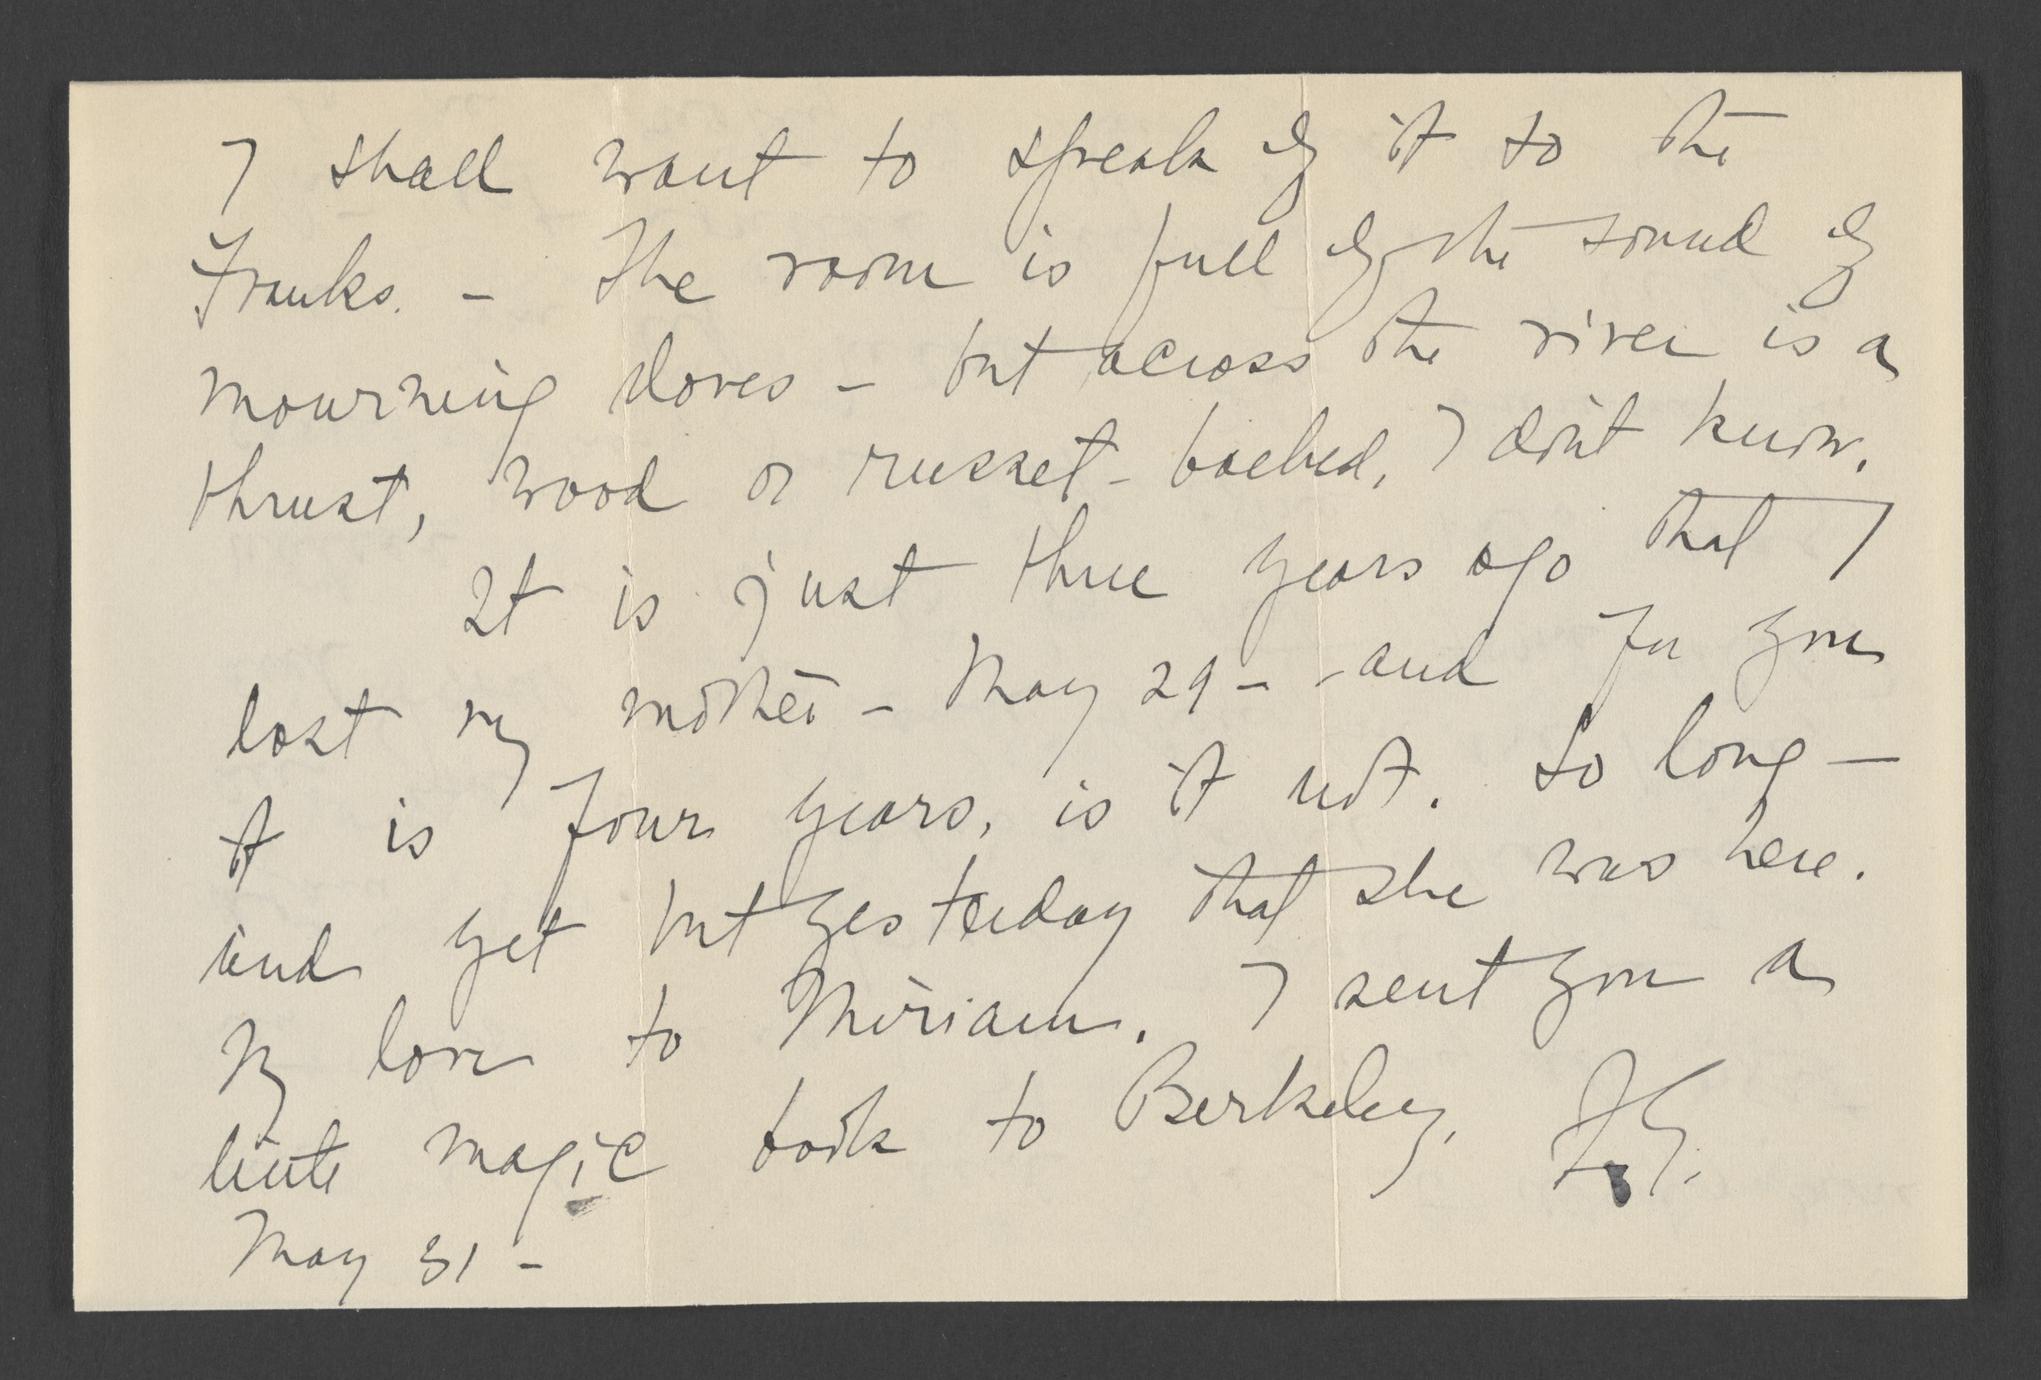 I shall want to speak of it to the
Franks. - The room is full of the sound of
mourning doves - but across the river is a
thrust, wood or russet-backed, I don't know.
It is just three years ago that I
lost my mother - May 29 - - and for you
it is four years, is it not. So long -
and yet but yesterday that she was here.
My love to Miriam. I sent you a
little magic book to Berkeley.
May 31 -